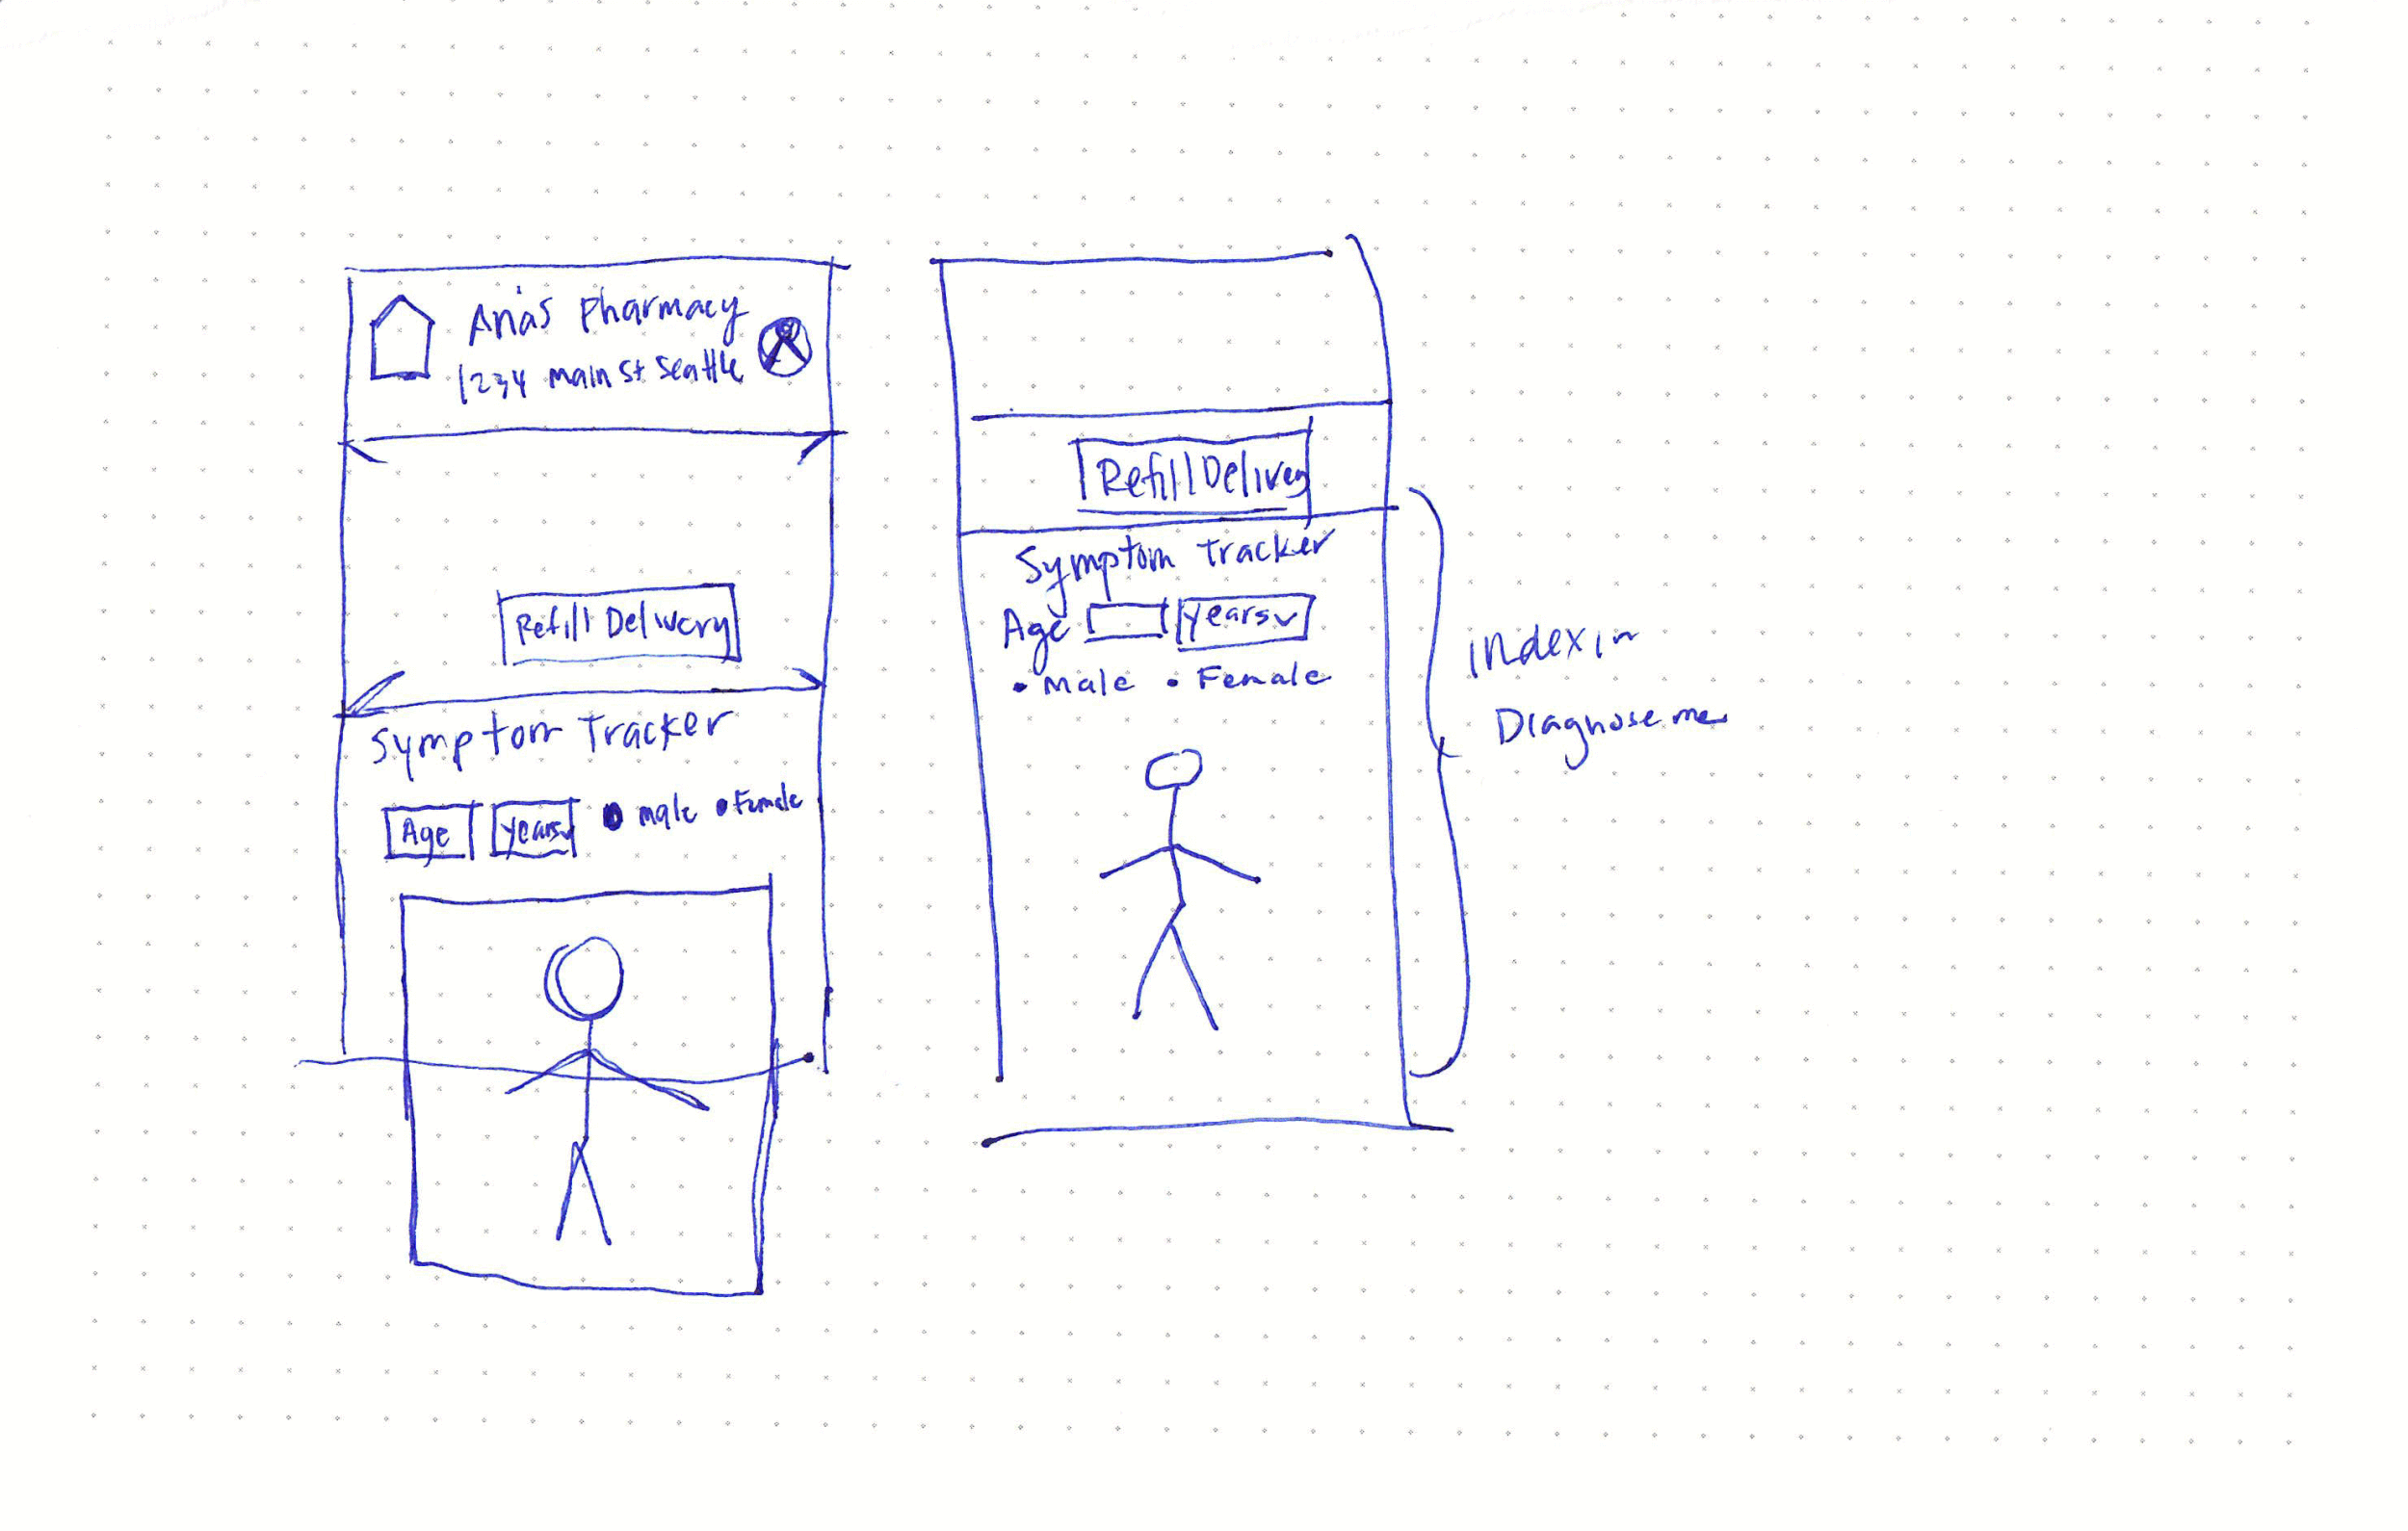 Ana's Pharmacy
1234 main st Seattle
Refill Delivery
Symptom Tracker
Age years male Female
Refill Delivery
Symptom Tracker
Age years
Male Female
index in
Diagnose me